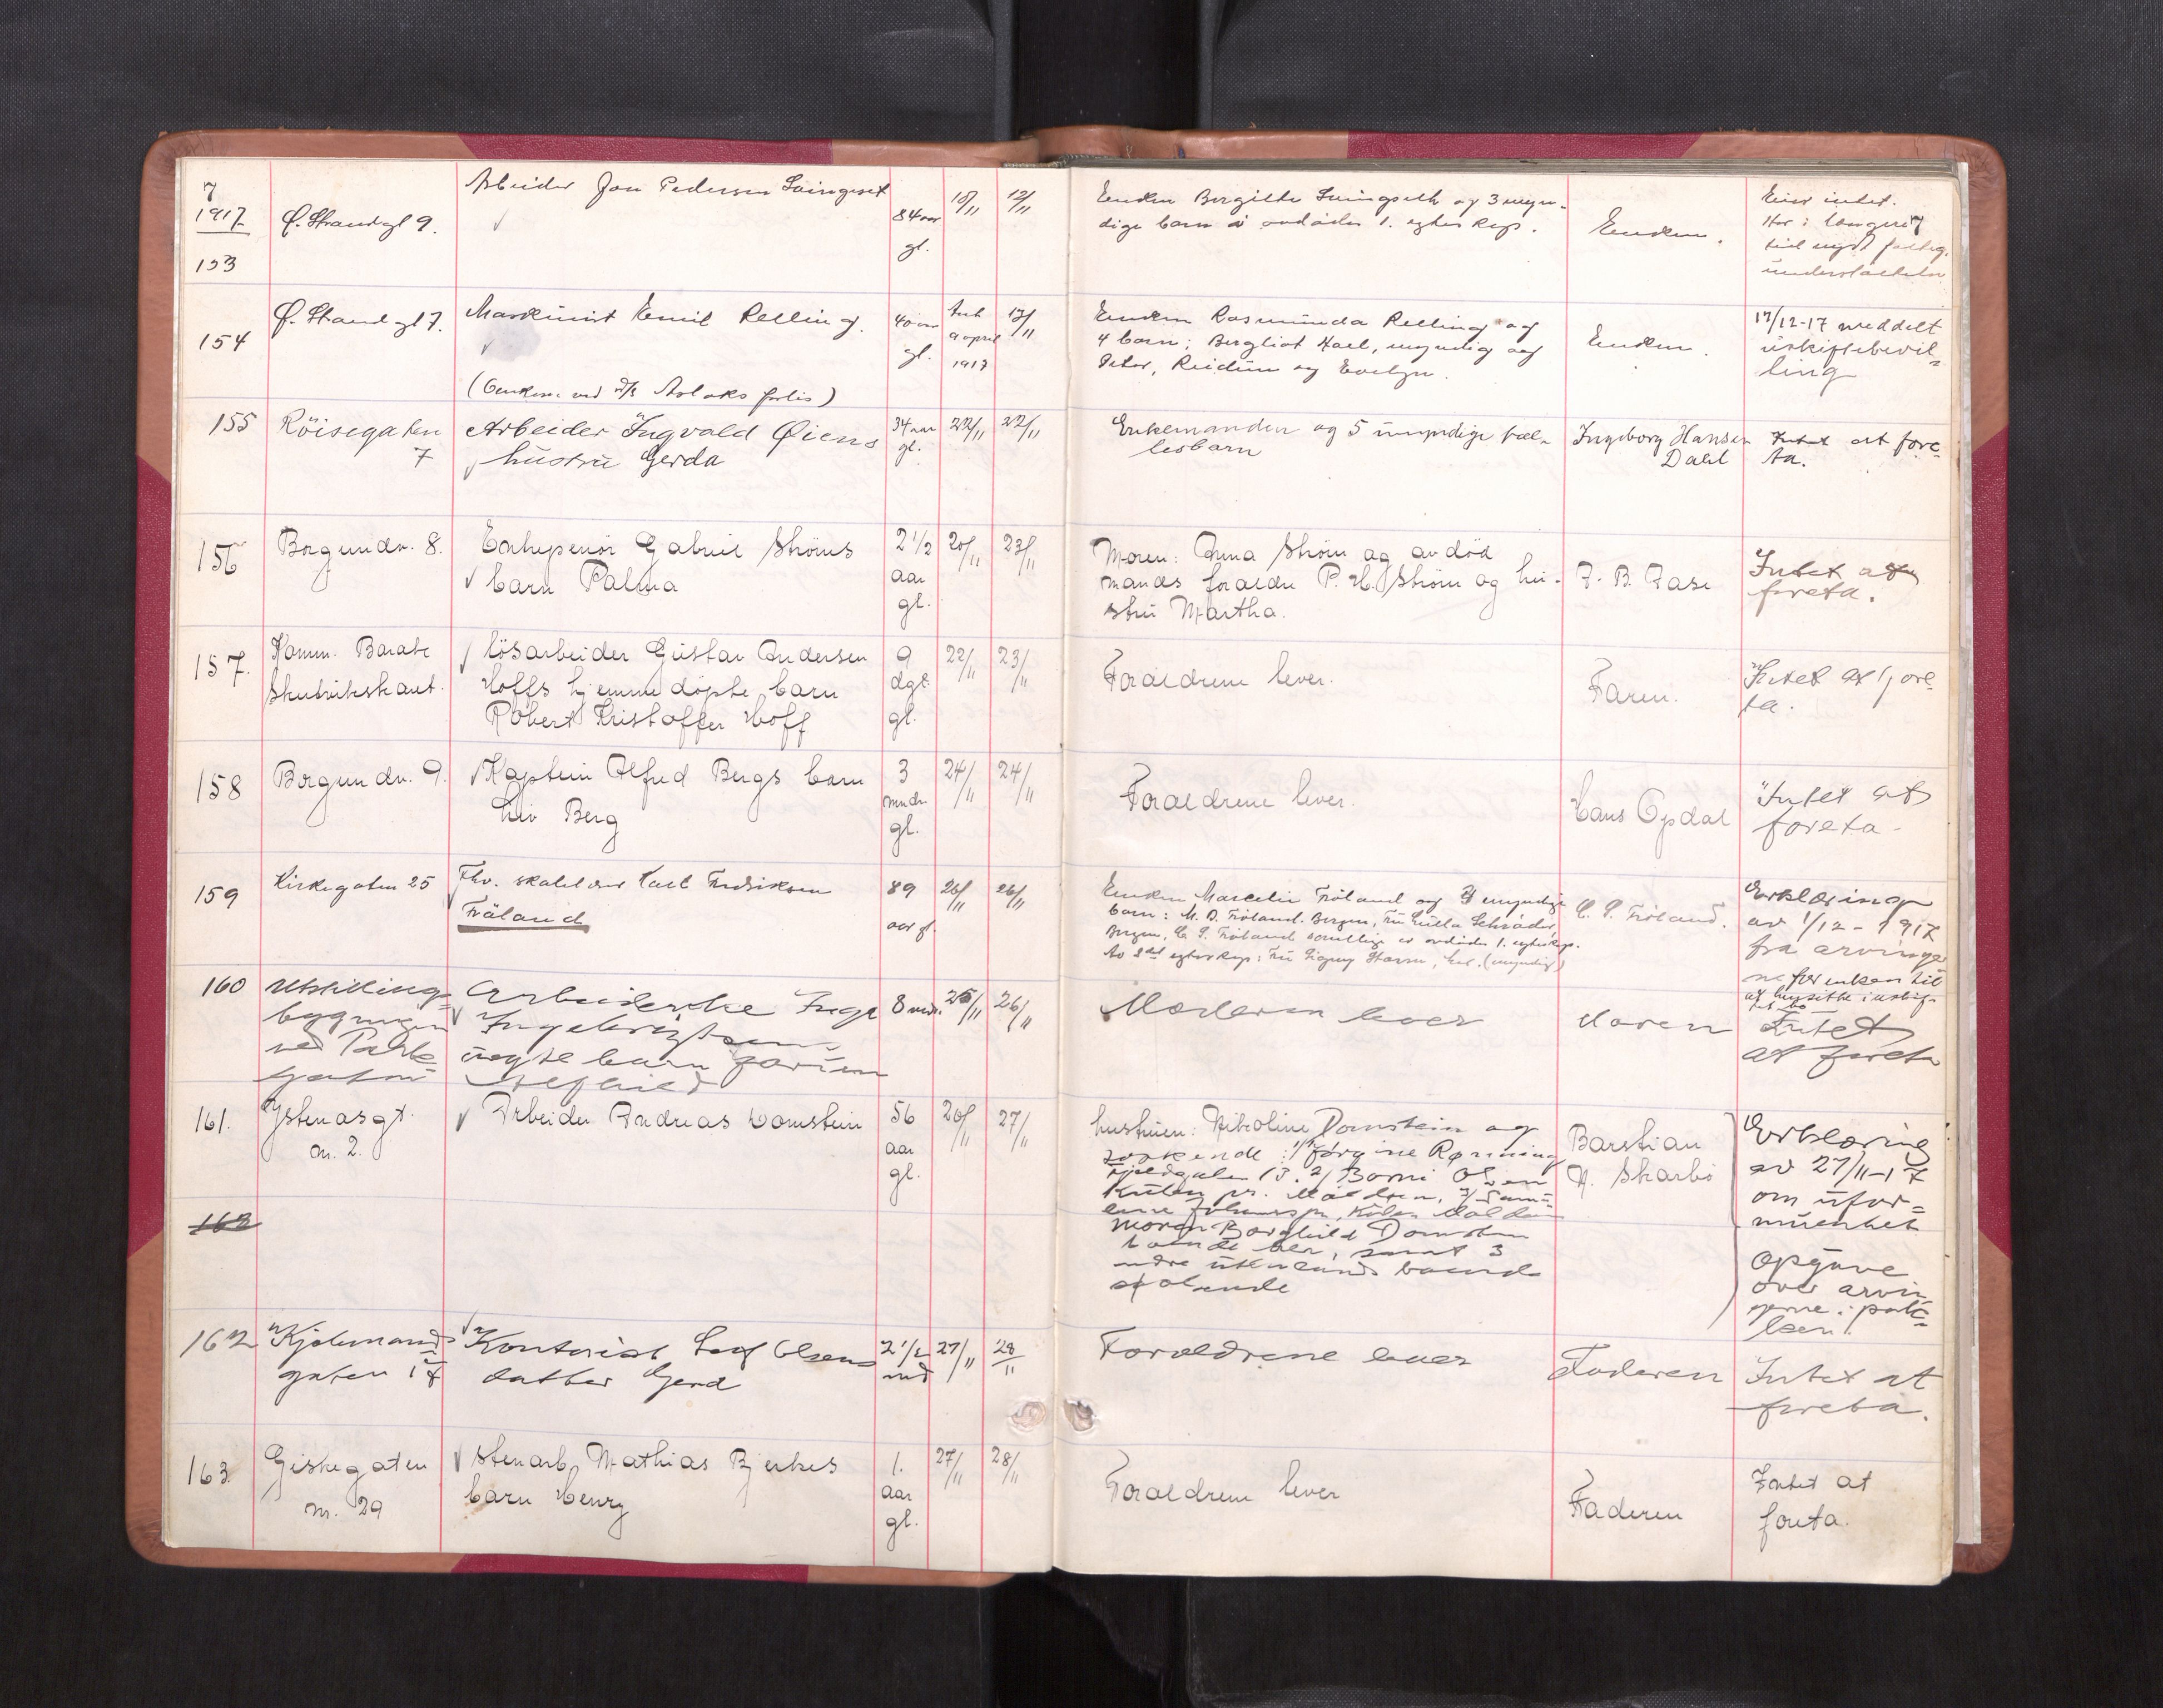 7
1917
153
Ø. Strandgt 9.
Arbeider Jon Pedersen
84 aar
gl.
10/11
12/11
Enken Bergitte og 3 myn-
dige barn i avdødes 1. egteskap.
Enken.
Eier intet.
Har i længere
tid nydt fattig.
understøttelse
154
Ø. Strandgt 7.
Maskinist Emil Relling.
(Omkom ved D/S Aslaks forlis)
40 aar
gl.
april
1917
17/11
Enken Rasmunda Relling og
4 barn: Bergliot Kael, myndig og
Peter, Reidun og Evelyn.
Enken.
17/12-17 meddelt
uskiftebevil-
ling
155
Röisegaten
7
Arbeider Ingvald Øiens
hustru Gerda
34 aar
gl.
22/11
22/11
Enkemanden og 5 umyndige fæl-
lesbarn
Ingeborg Hansen
Dahl
Intet at fore-
ta.
156
Borgundv. 8.
Entrepenör Gabriel Ströms
barn Palma
2 1/2
aar
gl.
20/11
23/11
Moren: Anna Ström og avdød
mands forældre P. H. Ström og hu-
stru Martha.
F. B. Aase
Intet at
foreta.
157.
Komm. Barak
Skutvikskaret.
Lösarbeider Gustav Andersen
Hoffs hjemmedöpte barn
Robert Kristoffer Hoff
9
dgr.
gl.
22/11
23/11
Foraeldrene lever.
Faren.
Intet at fore-
ta.
158
Borgundv. 9.
Kaptein Alfred Bergs barn
Liv Berg
3
mndr.
gl.
24/11
24/11
Foraeldrene lever.
Hans Opdal
Intet at
foreta.
159
Kirkegaten 25
Fhv. Karl Fredriksen
Fröland
89
aar gl.
26/11
26/11
Enken Marcelie Fröland og 4 myndige
barn: M. D. Fröland. Bergen, Fru Schrøder,
Bergen, C. P. Fröland samtlige av avdødes 1. egteskap.
Av 2det egteskap: Fru Signy (myndig)
C. P. Fröland.
Erklæring
av 1/12-1917
fra arvinger
ne for enken til
at hensitte i uskif-
tet bo
160
Utstillings-
bygningen
ved Park
gaten
Arbeiderske Inga
Ingebrigtsens
uegte barn
8 mdr.
25/11
26/11
Moderen lever
Moren
Intet
at foreta
161.
Ystenäsgt.
nr. 2.
Arbeider Andreas Domstein
56
aar
gl.
26/11
27/11
hustruen: Nikoline Domstein og
søskende: 1/ Jørgine Rønning
13. 2/ Olsen
pr. Maaløen, 3/
Moren Borghild Domstein
boende her, samt 3
andre utenlands boende
søskende
Barstian
A. Skarbö
Erklæring
av 27/11-17
om ufor-
muenhet
Opgave
over arvin-
gerne i pak-
ken!
162
162
Kjølemands-
gaten 17
Kontorist Leif Olsens
datter Gerd
2 1/2
md
27/11
28/11
Forældrene lever
Faderen
Intet at
foreta.
163.
Giskegaten
nr. 29
Stenarb. Mathias Bjerkes
barn Henry
1.
aar
gl.
27/11
28/11
Foraeldrene lever
Faderen
Intet at
foreta.